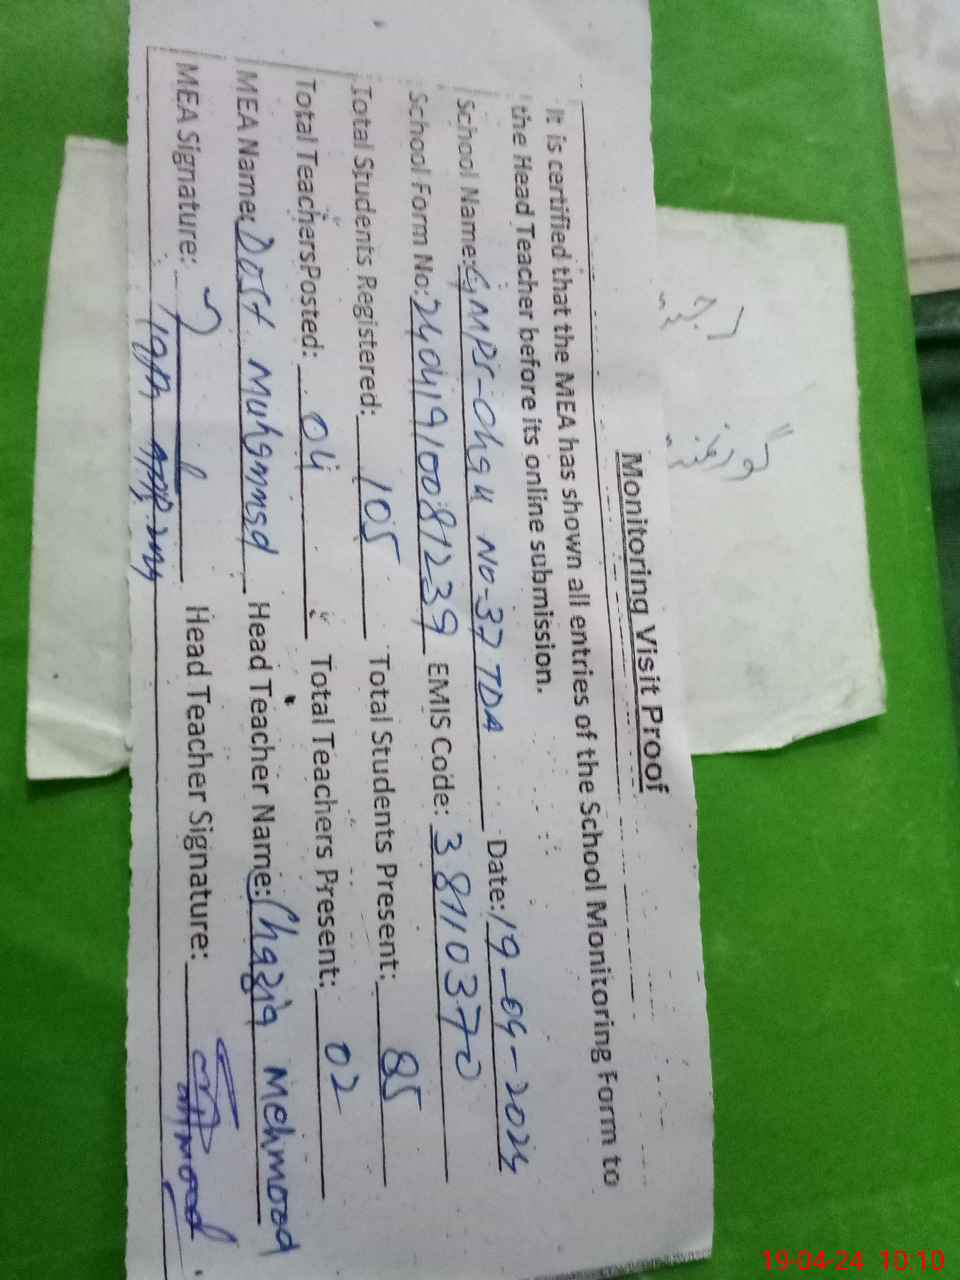 Monitoring Visit Proof
It is certified that the MEA has shown all entries of the School Monitoring Form to
the Head Teacher before its online submission.
School Name: GMPS-Chak No-37 TDA Date: 19-04-2024
School Form No: 24041910081239 EMIS Code: 38110370
Total Students Registered: 105 Total Students Present: 85
Total Teachers Posted: 04 Total Teachers Present: 02
MEA Name: Dost Muhammad Head Teacher Name: Chazia Mehmood
MEA Signature: Head Teacher Signature:
19-04-24 10:10